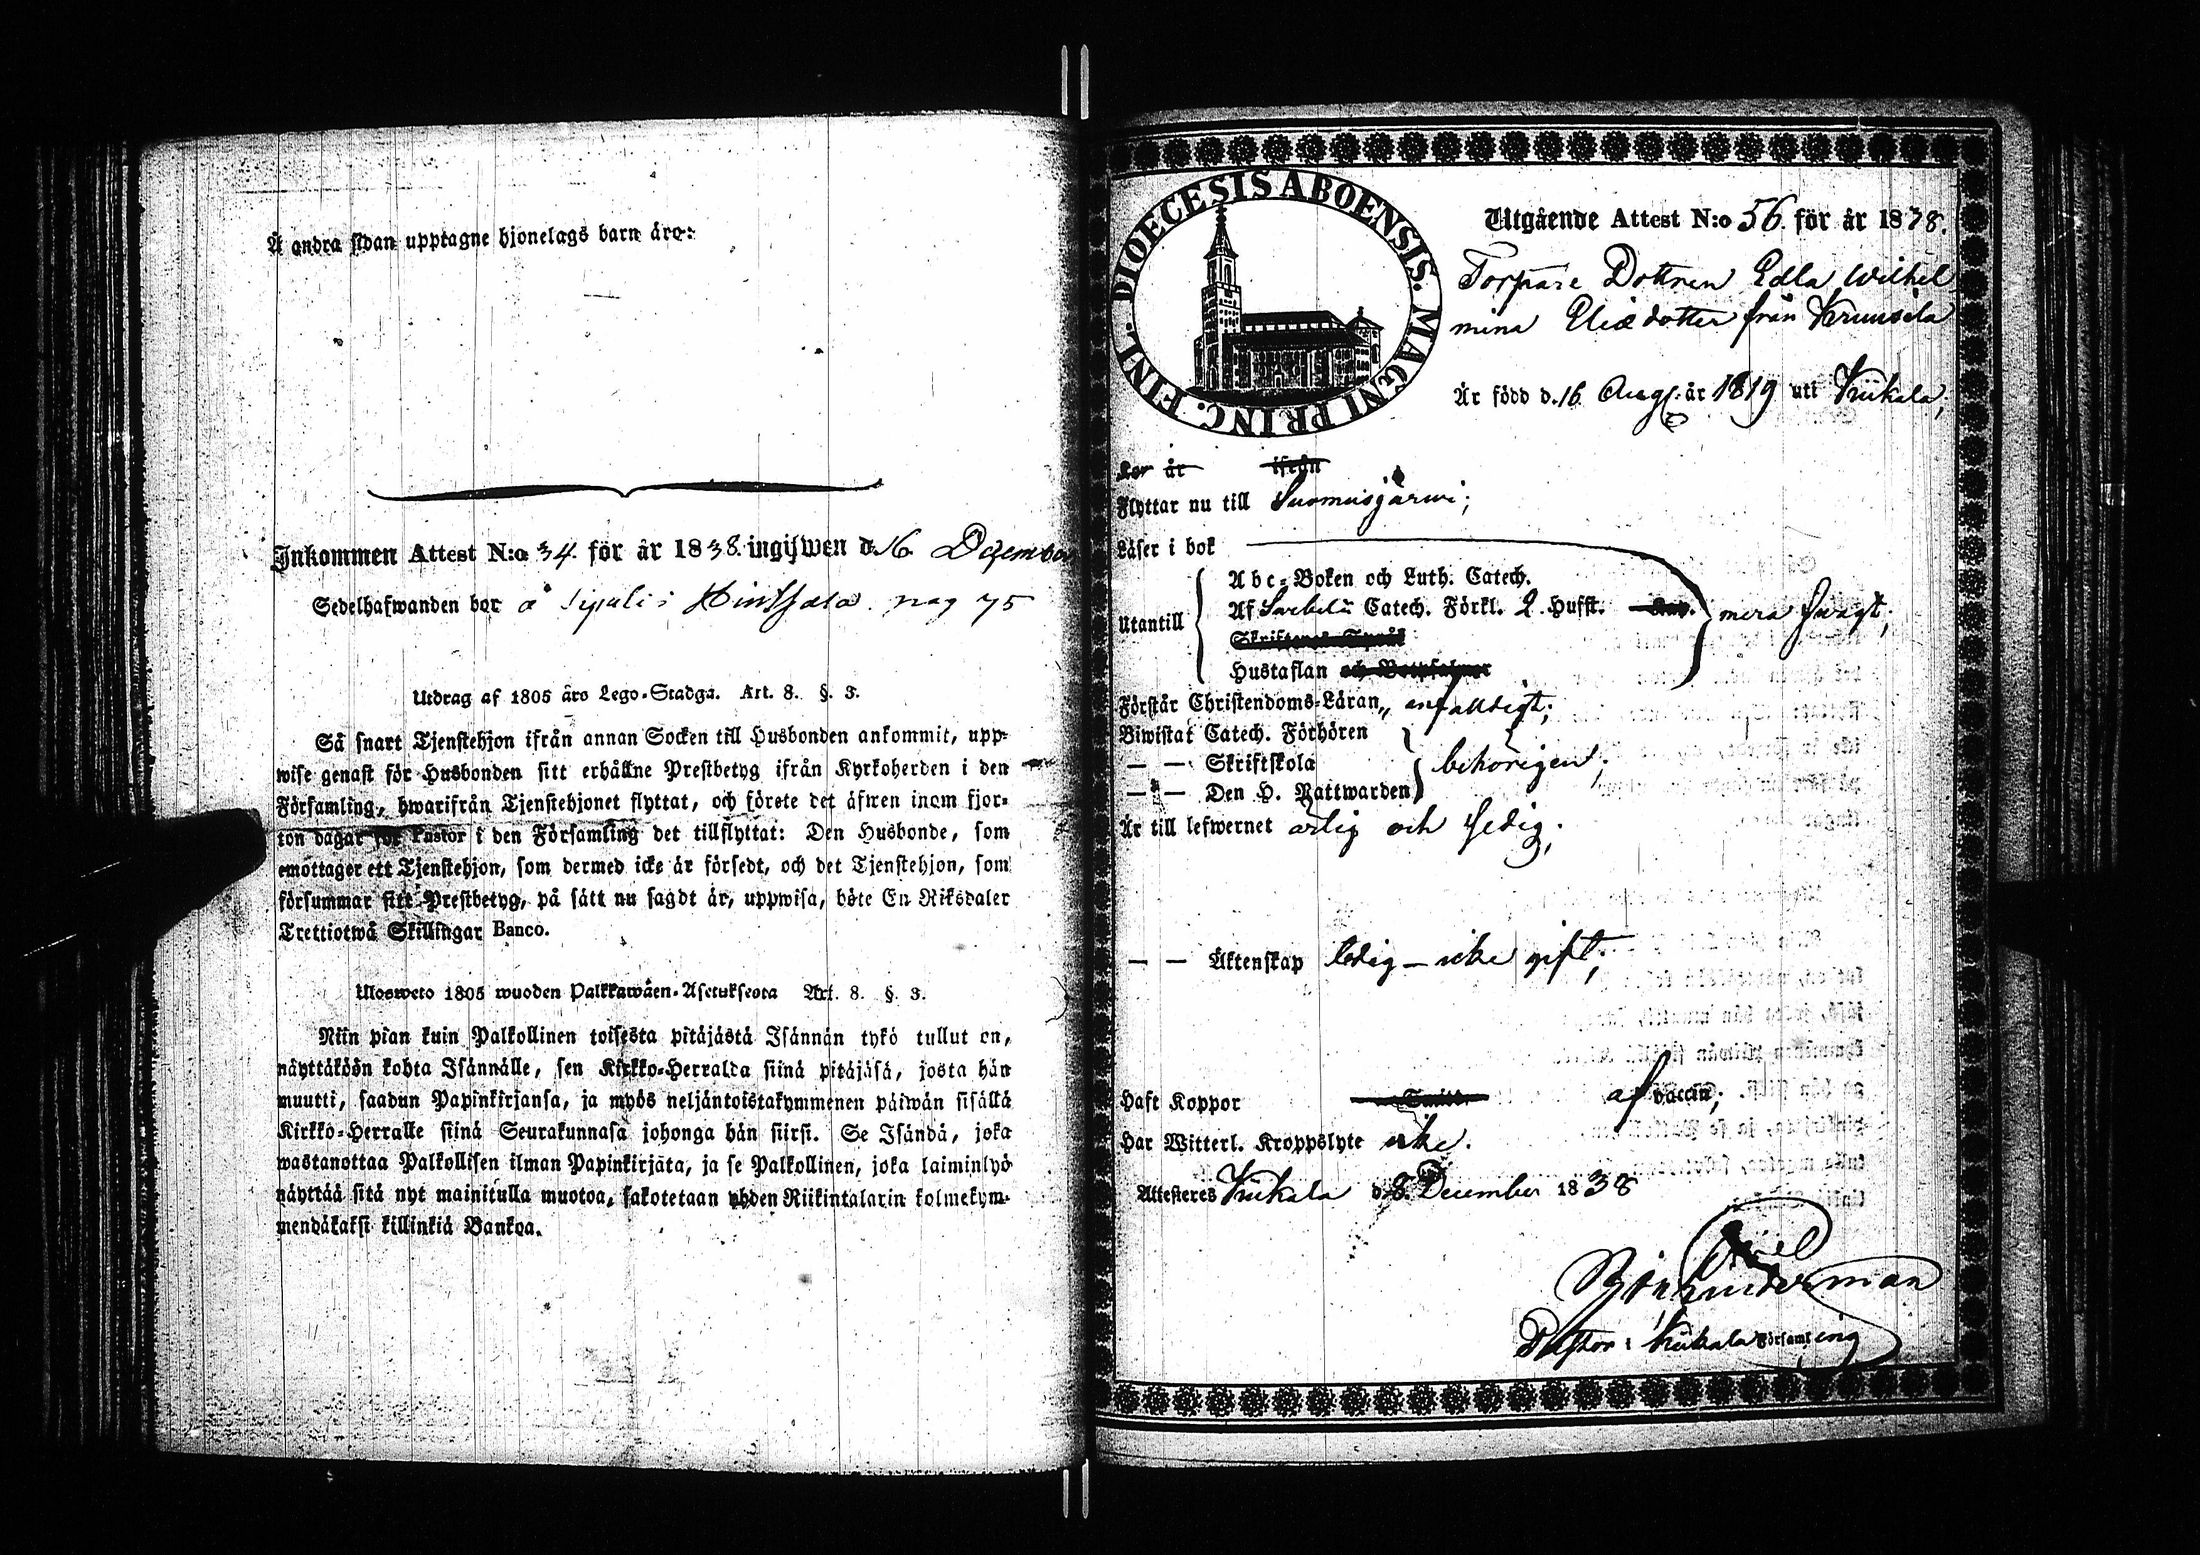 Å andra sidan upptagne hjonelags barn äro:
Inkommen Attest N:o 34. för år 1838. ingifwen d. 16 Dezember
Sedelhafwanden bor å Sipula i Hintsala pag 75
Utdrag af 1805 års Lego-Stadga. Art. 8. §. 3.
Så snart Tjenstehjon ifrån annan Socken till Husbonden ankommit, upp-
wise genast för Husbonden sitt erhållne Prestbetyg ifrån Kyrkoherden i den
Församling, hwarifrån Tjenstehjonet flyttat, och förete det äfwen inom fjor-
ton dagar för Pastor i den Församling det tillflyttat: Den Husbonde, som
emottager ett Tjenstehjon, som dermed icke är försedt, och det Tjenstehjon, som
försummar sitt Prestbetyg, på sätt nu sagdt är, uppwisa, böte En Riksdaler
Trettiotwå Skillingar Banco.
Ulosweto 1805 wuoden Palkkawäen-Asetuksesta Art. 8. §. 3.
Niin pian kuin Palkollinen toisesta pitäjästä Isännän tykö tullut on,
näyttäköön kohta Isännälle, sen Kirkko-Herralda siinä pitäjäsä, josta hän
muutti, saadun Papinkirjansa, ja myös neljäntoistakymmenen päiwän sisällä
Kirkko-Herralle siinä Seurakunnasa johonga hän siirsi. Se Isändä, joka
wastanottaa Palkollisen ilman Papinkirjata, ja se Palkollinen, joka laiminlyö
näyttää sitä nyt mainitulla muotoa, sakotetaan yhden Riikintalarin kolmekym-
mendäkaksi killinkiä Bankoa.
DIOECESIS ABOENSIS. MAGNI PRINC. FINL.
Utgående Attest N:o 56. för år 1838.
Torpare Dottren Edla Wilhel
mina Eliædotter från Kruusila
Är född d. 16 Aug. år 1819 uti Kiikala;
Kom år ifrån
Flyttar nu till Suomusjärwi;
Läser i bok
Utantill
Abc-Boken och Luth. Catech.
Af Swebelii Catech. Förkl. 2. Hufst.
mera swagt;
Skriftenes Språk
Hustaflan och Botpsalmer
Förstår Christendoms-Läran enfaldigt;
Biwistat Catech. Förhören
— — Skriftskola behörigen;
— — Den H. Nattwarden
Är till lefwernet ärlig och sedig;
— — Äktenskap ledig — icke gift;
Haft Koppor af vaccin;
Har Witterl. Kroppslyte icke.
Attesteres Kiikala d. 8. December 1838
Björklunderman
Pastor i Kiikala Församling